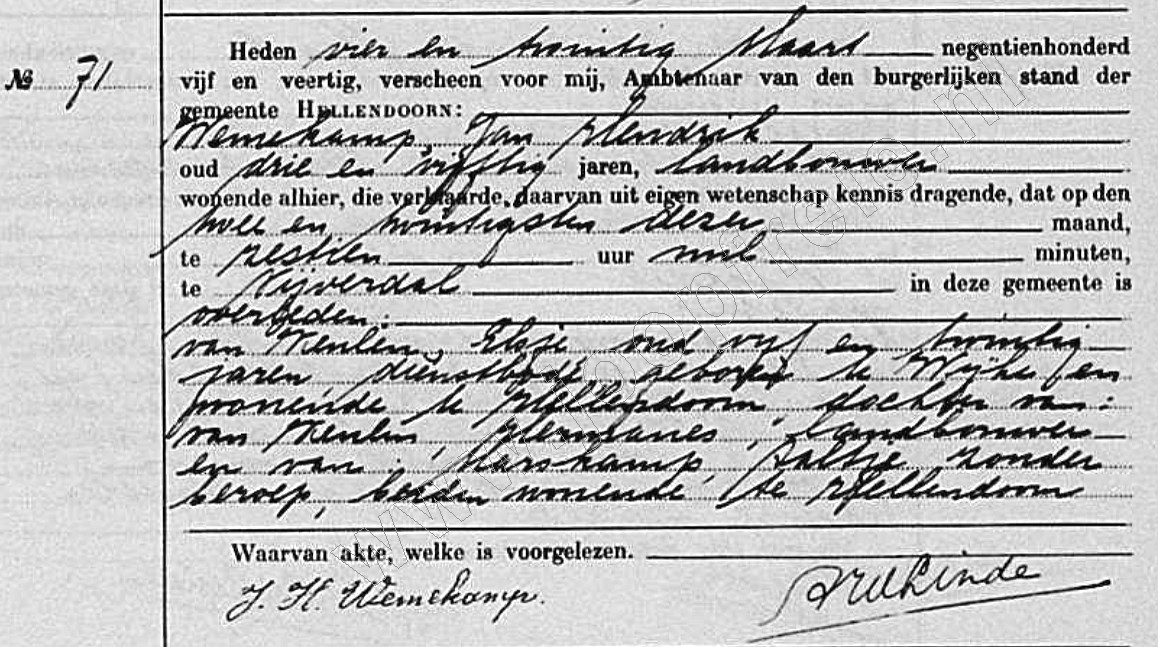 Heden vier en twintig Maart negentienhonderd
№ 71 vijf en veertig, verscheen voor mij, Ambtenaar van den burgerlijken stand der
gemeente HELLENDOORN:
Wemekamp, Jan Hendrik
oud drie en vijftig jaren, landbouwer
wonende alhier, die verklaarde, daarvan uit eigen wetenschap kennis dragende, dat op den
twee en twintigsten dezer maand,
te zestien uur nul minuten,
te Nijverdal in deze gemeente is
overleden:
van Keulen, Elsje oud vijf en twintig
jaren dienstbode geboren te Wijhe en
wonende te Hellendoorn, dochter van:
van Keulen, Hermannes, landbouwer
en van: Marskamp, Aaltje zonder
beroep, beiden wonende te Hellendoorn
Waarvan akte, welke is voorgelezen.
J. H. Wemekamp.